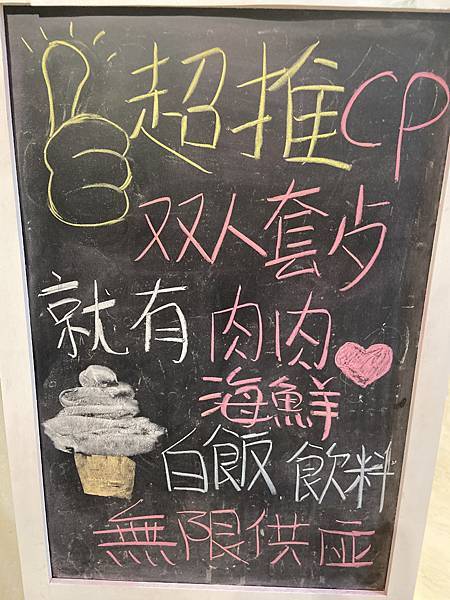 超推CP
双人套歺
就有肉肉
海鮮
白飯.飲料
無限供应